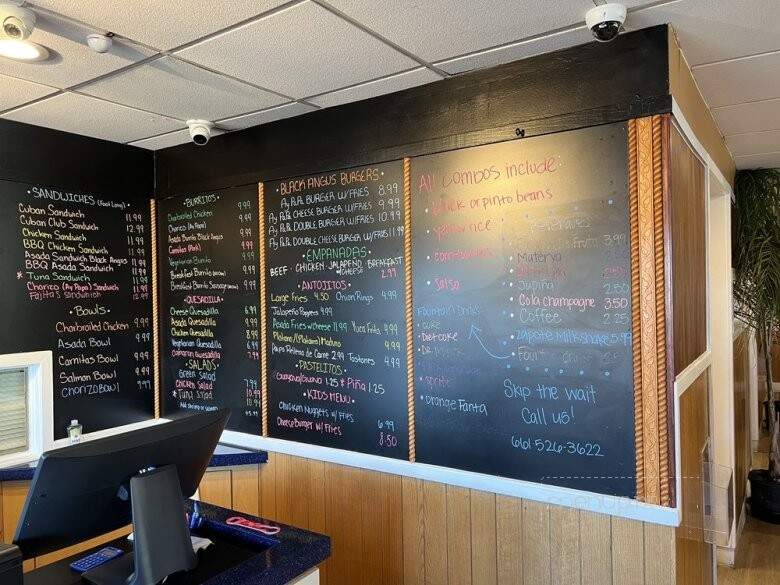 • SANDWICHES (Foot Long) •
Cuban Sandwich 11.99
Cuban Club Sandwich 12.99
Chicken Sandwich 11.99
BBQ Chicken Sandwich 11.99
Asada Sandwich Black Angus 11.99
BBQ Asada Sandwich 11.99
* Tuna Sandwich 11.99
Chorizo (Ay Papa) Sandwich 11.99
Fajitas Sandwich 12.99
• BOWLS •
Charbroiled Chicken 9.99
Asada Bowl 9.99
Carnitas Bowl 9.99
Salmon Bowl 9.99
Chorizo Bowl 9.99
• BURRITOS •
Charbroiled Chicken 9.99
Chorizo (Ay Papa) 9.99
Asada Burrito Black Angus 9.99
Carnitas (Pork) 9.99
Vegetarian Burrito
Breakfast Burrito
Breakfast Burrito Sausage
• QUESADILLA •
Cheese Quesadilla 6.99
Asada Quesadilla
Chicken Quesadilla 8.99
Vegetarian Quesadilla 6.99
Carnitas Quesadilla 7.99
• SALADS •
Green Salad 7.99
Chicken Salad 10.99
* Tuna Salad 10.99
Add shrimp or salmon
• BLACK ANGUS BURGERS •
BURGER W/FRIES 8.99
CHEESE BURGER W/FRIES 9.99
DOUBLE BURGER W/FRIES 10.99
DOUBLE CHEESE BURGER W/FRIES 11.99
• EMPANADAS •
BEEF • CHICKEN • JALAPENO • BREAKFAST
& CHEESE 2.99
• ANTOJITOS •
Large Fries 4.50 Onion Rings 4.99
Jalapeño Poppers 4.99
Asada Fries w/cheese 11.99 Yuca Frita 4.99
Platano / Maduro 4.99
Papa Rellena de Carne 2.99 Tostones 4.99
• PASTELITOS •
Guayava/Queso 1.25 & Piña 1.25
• KIDS MENU •
Chicken Nuggets w/ Fries 6.99
Cheese Burger w/ Fries 8.50
All combos include:
• black or pinto beans
• yellow rice
• corn tortillas
• salsa
Fountain Drinks
• Coke
• Diet Coke
• Sprite
• Orange Fanta
• Beverages •
3.99
Materva
Jupiña 2.50
Cola Champagne 3.50
• Coffee 2.25
Zapote Milkshake 5.99
Skip the wait
Call us!
661-526-3622